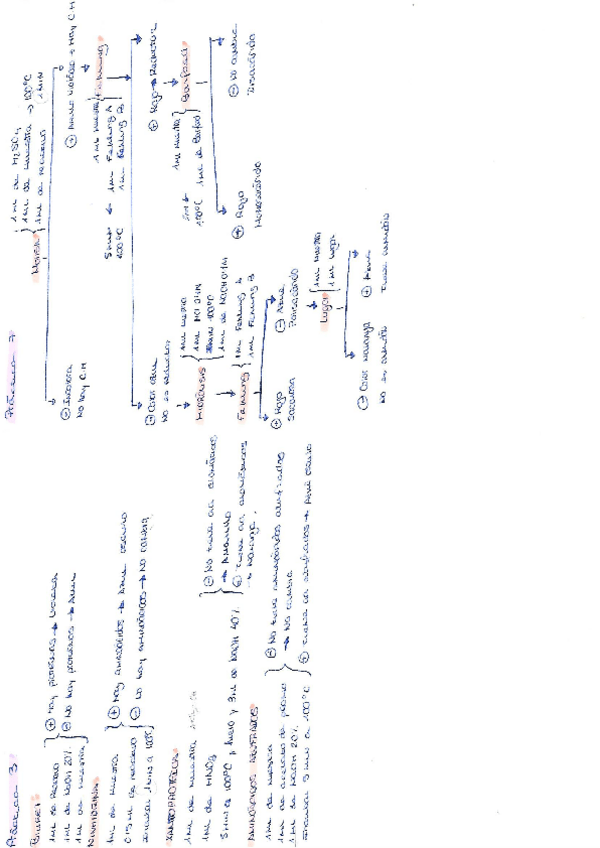 Práctica 3
Biuret
1mL de Reactivo
1mL de NaOH 20%
1mL de muestra
⊕ Hay proteínas → Violeta
⊖ No hay proteínas → Azul
NINHIDRINA
1mL de muestra
0'5mL de reactivo
⊕ Hay aminoácidos → Azul oscuro
⊖ No hay aminoácidos → No cambia
XANTOPROTEICA
1mL de muestra
1mL de HNO3
5 min a 100ºC y 3mL de NaOH 40%
⊖ No tiene aa aromáticos
→ Amarillo
⊕ tiene aa aromáticos
→ Naranja.
AMINOÁCIDOS AZUFRADOS
1mL de muestra
1mL de acetato de plomo
1mL de NaOH 20%
5 min a 100ºC
⊖ No tiene aminoácidos azufrados
→ No cambia
Práctica 7
Molisch
1mL de H2SO4
1mL de muestra → 100ºC
1mL de reactivo
1 MIN
⊖ Incolora
No hay C.H
⊕ Anillo violeta → Hay C.H
1mL muestra
1mL Fehling A
1mL Fehling B
Fehling
5 min
100ºC
⊖ Color azul
No es reductor
⊕ Rojo → Reductor
1mL muestra
1mL de Barfoed
Barfoed
5 min
100ºC
⊕ Rojo
Monosacárido
⊖ No cambia
Disacárido
HIDRÓLISIS
1mL muestra
1mL HCl 2N
100ºC
1mL de NaOH
Fehling
1mL Fehling A
1mL Fehling B
⊕ Rojo
Sacarosa
⊖ Azul
Polisacárido
Lugol
1mL muestra
1mL Lugol
⊖ Color naranja
No es almidón
⊕ Azul
Tiene almidón